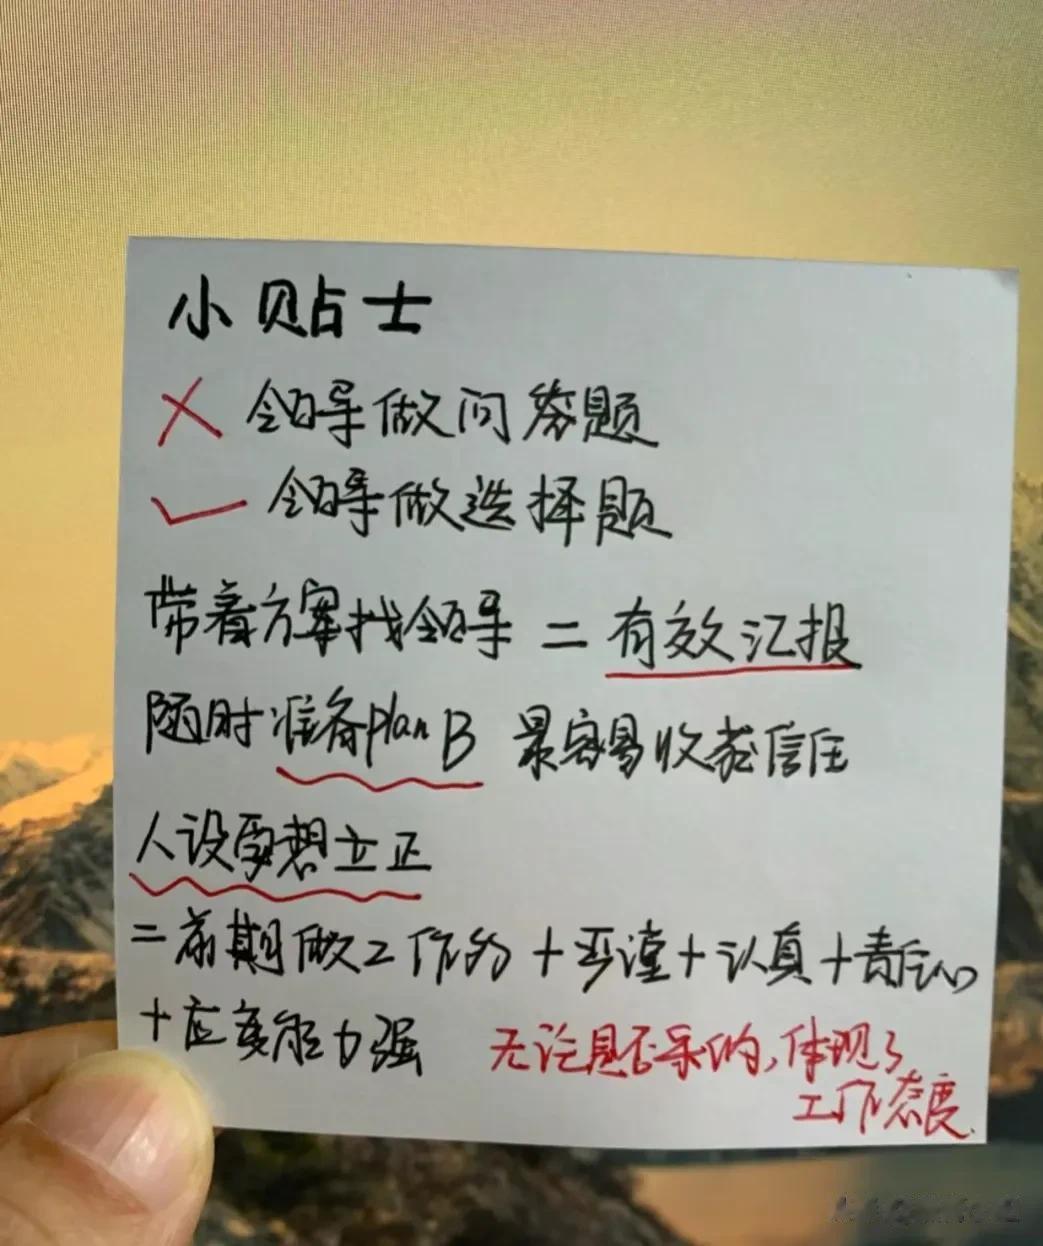 小贴士
✗ 领导做问答题
✓ 领导做选择题
带着方案找领导 = 有效汇报
随时准备plan B 最容易收获信任
人设要想立正
= 前期做工作 + 严谨 + 认真 + 责任心
+ 应变能力强
无论是否采纳,体现了
工作态度.